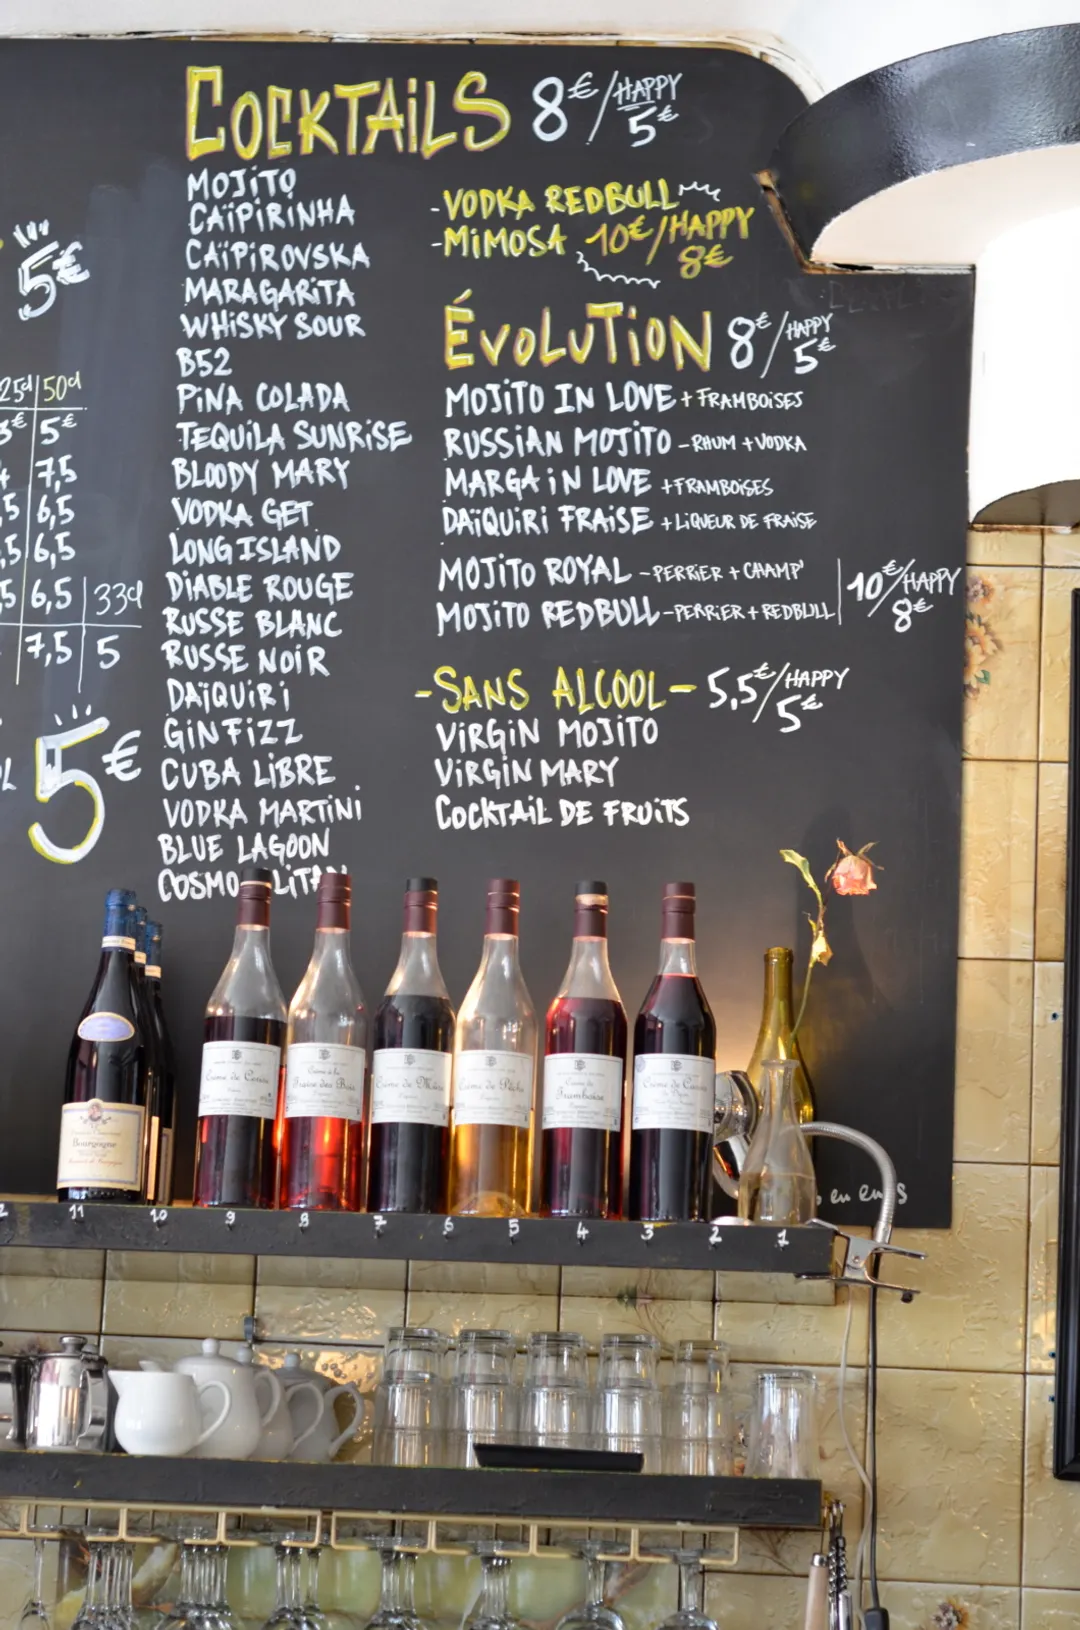 COCKTAiLS 8€/HAPPY 5€
MOJiTO
CAÏPiRiNHA
CAÏPiROVSKA
MARAGARiTA
WHiSKY SOUR
B52
PiNA COLADA
TEQUiLA SUNRiSE
BLOODY MARY
VODKA GET
LONG ISLAND
DiABLE ROUGE
RUSSE BLANC
RUSSE NOiR
DAÏQUiRi
GiN FiZZ
CUBA LiBRE
VODKA MARTiNi
BLUE LAGOON
COSMO LiTAN
-VODKA REDBULL
-MiMOSA 10€/HAPPY 8€
ÉVOLUTiON 8€/HAPPY 5€
MOJiTO IN LOVE + FRAMBOiSES
RUSSiAN MOJiTO - RHUM + VODKA
MARGA iN LOVE + FRAMBOiSES
DAÏQUiRi FRAiSE + LiQUEUR DE FRAiSE
MOJiTO ROYAL - PERRiER + CHAMP'
MOJiTO REDBULL - PERRiER + REDBULL
10€/HAPPY 8€
-SANS ALCOOL- 5,5€/HAPPY 5€
ViRGiN MOJiTO
ViRGiN MARY
COCKTAiL DE FRUiTS
5€
25cl 50cl
5€
7,5
6,5
6,5
6,5 33cl
7,5 5
5€
Bourgogne
Crème de Cassis
Crème à la
Fraise des Bois
Crème de Mûre
Crème de Pêche
Crème de
Framboise
Crème de Cassis
11 10 9 8 7 6 5 4 3 2 1